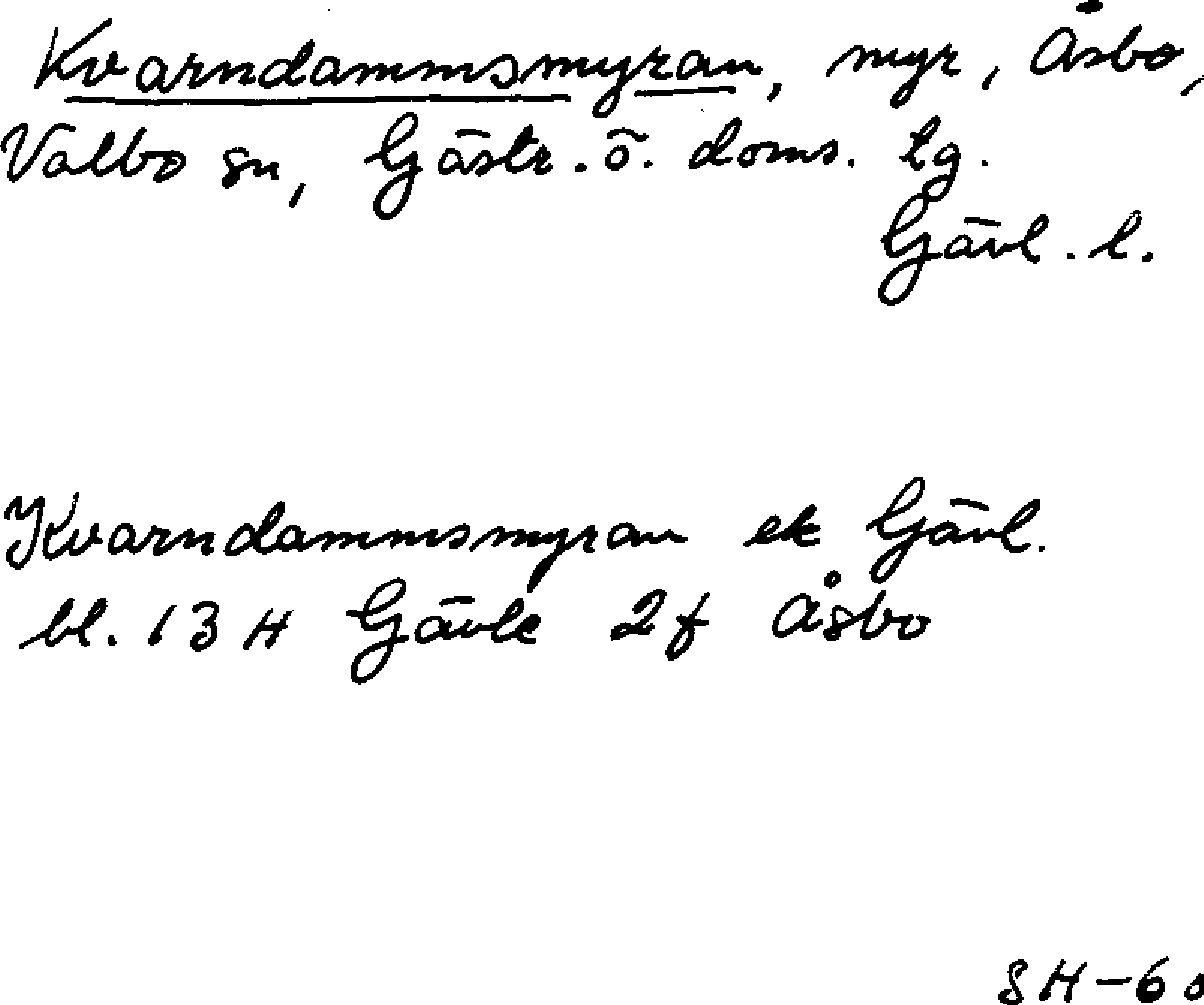 Kvarndammsmyran, myr, Åsbo,
Valbo sn, Gästr. ö. doms. tg.
Gävl. l.
Kvarndammsmyran ek Gävl.
bl. 13 H Gävle 2f Åsbo
SH-60